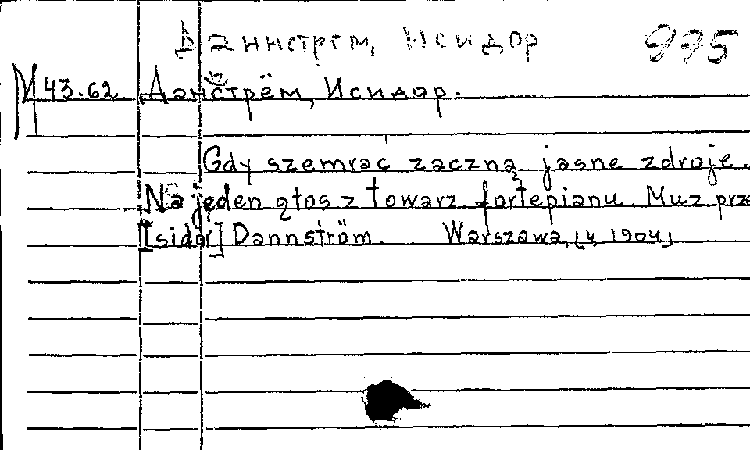 Даннстрем, Исидор 995
М 43.62 Даннстрём, Исидор.
Gdy szemrać zaczną jasne zdroje.
Na jeden głos z towarz fortepianu Muz prze
[Isidor] Dannström. Warszawa, [ 1904]